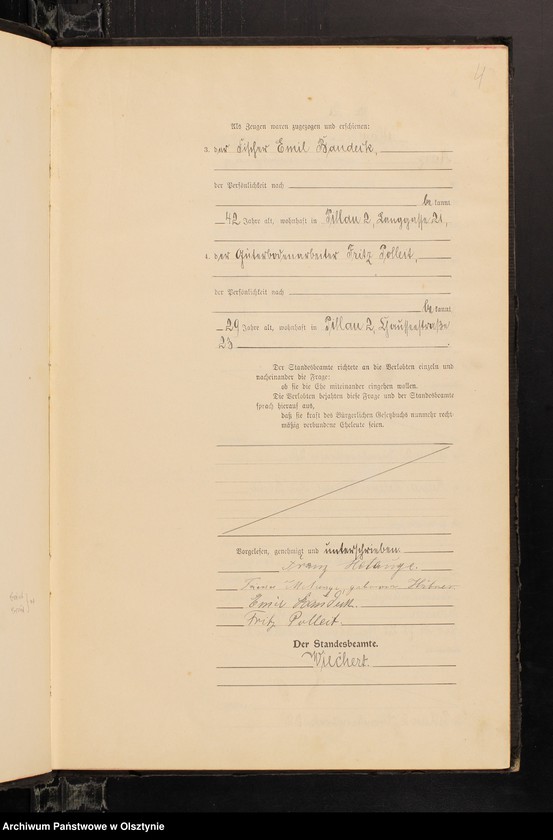 4
Als Zeugen waren zugezogen und erschienen:
3. der Fischer Emil Bandeik,
der Persönlichkeit nach
be kannt,
42 Jahre alt, wohnhaft in Pillau 2, Langgasse 21,
4. der Güterbodenarbeiter Fritz Polleit,
der Persönlichkeit nach
be kannt,
29 Jahre alt, wohnhaft in Pillau 2, Chausseestraße
23
Der Standesbeamte richtete an die Verlobten einzeln und
nacheinander die Frage:
ob sie die Ehe miteinander eingehen wollen.
Die Verlobten bejahten diese Frage und der Standesbeamte
sprach hierauf aus,
daß sie kraft des Bürgerlichen Gesetzbuchs nunmehr recht-
mäßig verbundene Eheleute seien.
Vorgelesen, genehmigt und unterschrieben.
Franz
geborene
Emil Bandeik.
Fritz Polleit.
Der Standesbeamte.
Wiechert.
Archiwum Państwowe w Olsztynie